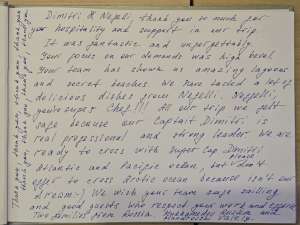 Dimitri & Nepeli, thank you so much for
your hospitality and support in our trip.
It was fantastic and unforgettably.
Your focus on our demands was high level
Your team has shown us amazing lagoons
and secret beaches. We have tasted a lot of
delicious dishes from Nepeli, Neppeli,
you're super Chef!!! All our trip we felt
safe because our Captain Dimitri is
real professional and strong leader we are
ready to cross with Super Cap Dimitri
Atlantic and Pacific ocean, but please don't
offer to cross Arctic ocean because isn't our
dream:-) We wish your team safe sailing
and good guests who respect your work and
Two families from Russia.
Thank you, thank you, thank you, thank you
thank you, thank you, thank you, thank you